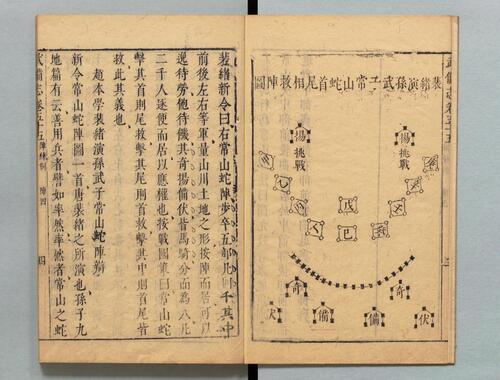 裴緒演孫武子常山蛇首尾相救陣圖
揚
挑戰
揚
挑戰
戊
己
奇
奇
備
備
伏
伏
裴緒新令曰右常山蛇陣步卒五部凡四千其中
前後左右等軍量山川土地之形按陣而居可以
逸待勞飽待饑其奇揚備伏皆馬騎分而為八凡
二千人逐便而居以應權也按戰圖策曰常山蛇
擊其首則尾救擊其尾則首救擊其中則首尾皆
救此其義也
趙本學裴緒演孫武子常山蛇陣辯
新令常山蛇陣圖一首唐裴緒之所演也孫子九
地篇有云善用兵者譬如率然率然者常山之蛇
武備志卷五十五 陣練制 陣四 四